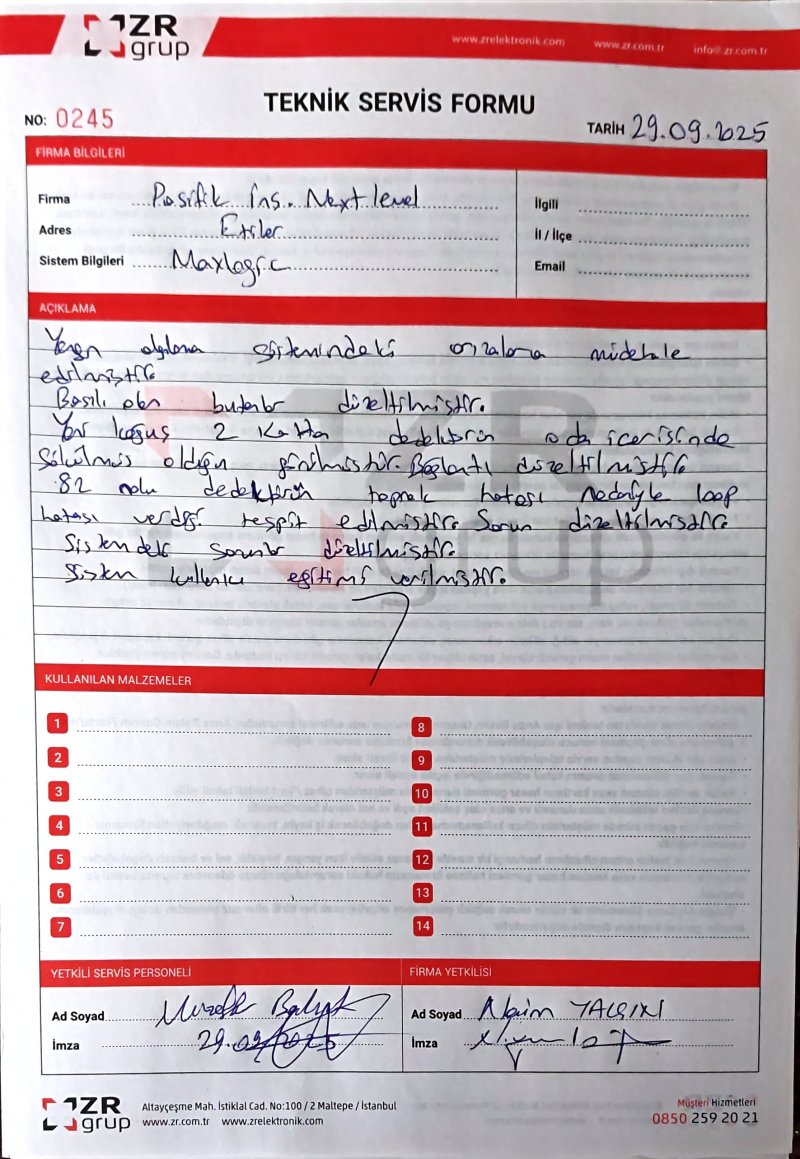 ZR
grup
www.zrelektronik.com www.zr.com.tr info@zr.com.tr
TEKNİK SERVİS FORMU
NO: 0245
TARİH 29.09.2025
FİRMA BİLGİLERİ
Firma Pasifik İnş. Next level
Adres Etiler
Sistem Bilgileri Maxlogic
İlgili
İl / İlçe
Email
AÇIKLAMA
Yangın algılama sistemindeki arızalara müdehale
edilmiştir.
Basılı olan butonlar düzeltilmiştir.
2 Katta dedektörün oda içerisinde
sökülmüş olduğu görülmüştür. Bağlantı düzeltilmiştir.
82 nolu dedektörün toprak hatası nedeniyle loop
hatası verdiği tespit edilmiştir. Sorun düzeltilmiştir.
Sistemdeki sorunlar düzeltilmiştir.
Sistem kullanıcı eğitimi verilmiştir.
KULLANILAN MALZEMELER
1
2
3
4
5
6
7
8
9
10
11
12
13
14
YETKİLİ SERVİS PERSONELİ
Ad Soyad
İmza 29.09.2025
FİRMA YETKİLİSİ
Ad Soyad YALÇIN
İmza
ZR
grup
Altayçeşme Mah. İstiklal Cad. No:100 / 2 Maltepe / İstanbul
www.zr.com.tr www.zrelektronik.com
Müşteri Hizmetleri
0850 259 20 21